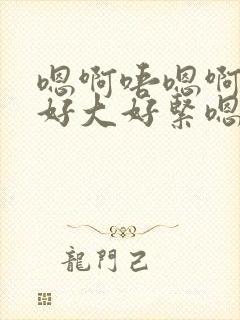 嗯啊唔嗯啊
好大好紧嗯
龍門己